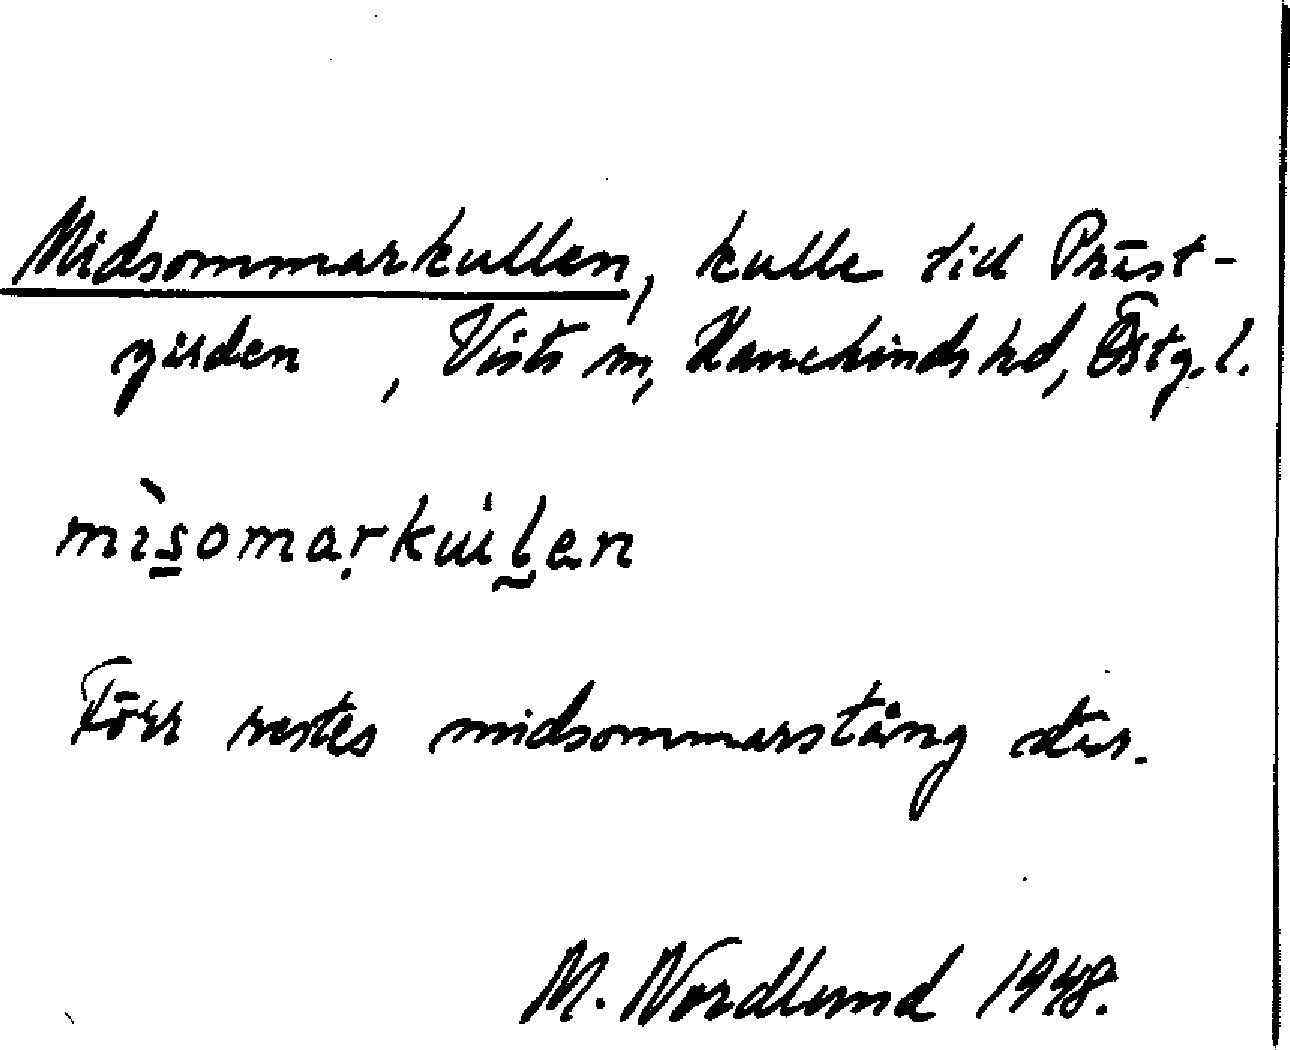 Midsommarkullen, kulle vid Präst-
gården, Vists sn, Hanekinds hd, Östg. l.
mìs̲omạrkuıl̰en
Förr restes midsommarstång där.
M. Nordlund 1948.